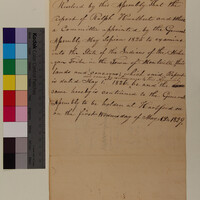 Resolved by this Assembly that the
report of Ralph Hurlbutt and others
a Committee appointed by the General
Assembly May Session 1826 to examine
into the State of the Indians of the Mohe-
gan Tribe in the Town of Montville, their
lands and concerns, which said Report
is dated May 1826 be and the
same hereby is continued to the General
Assembly to be holden at Hartford on
on the first Wednesday of May AD 1827